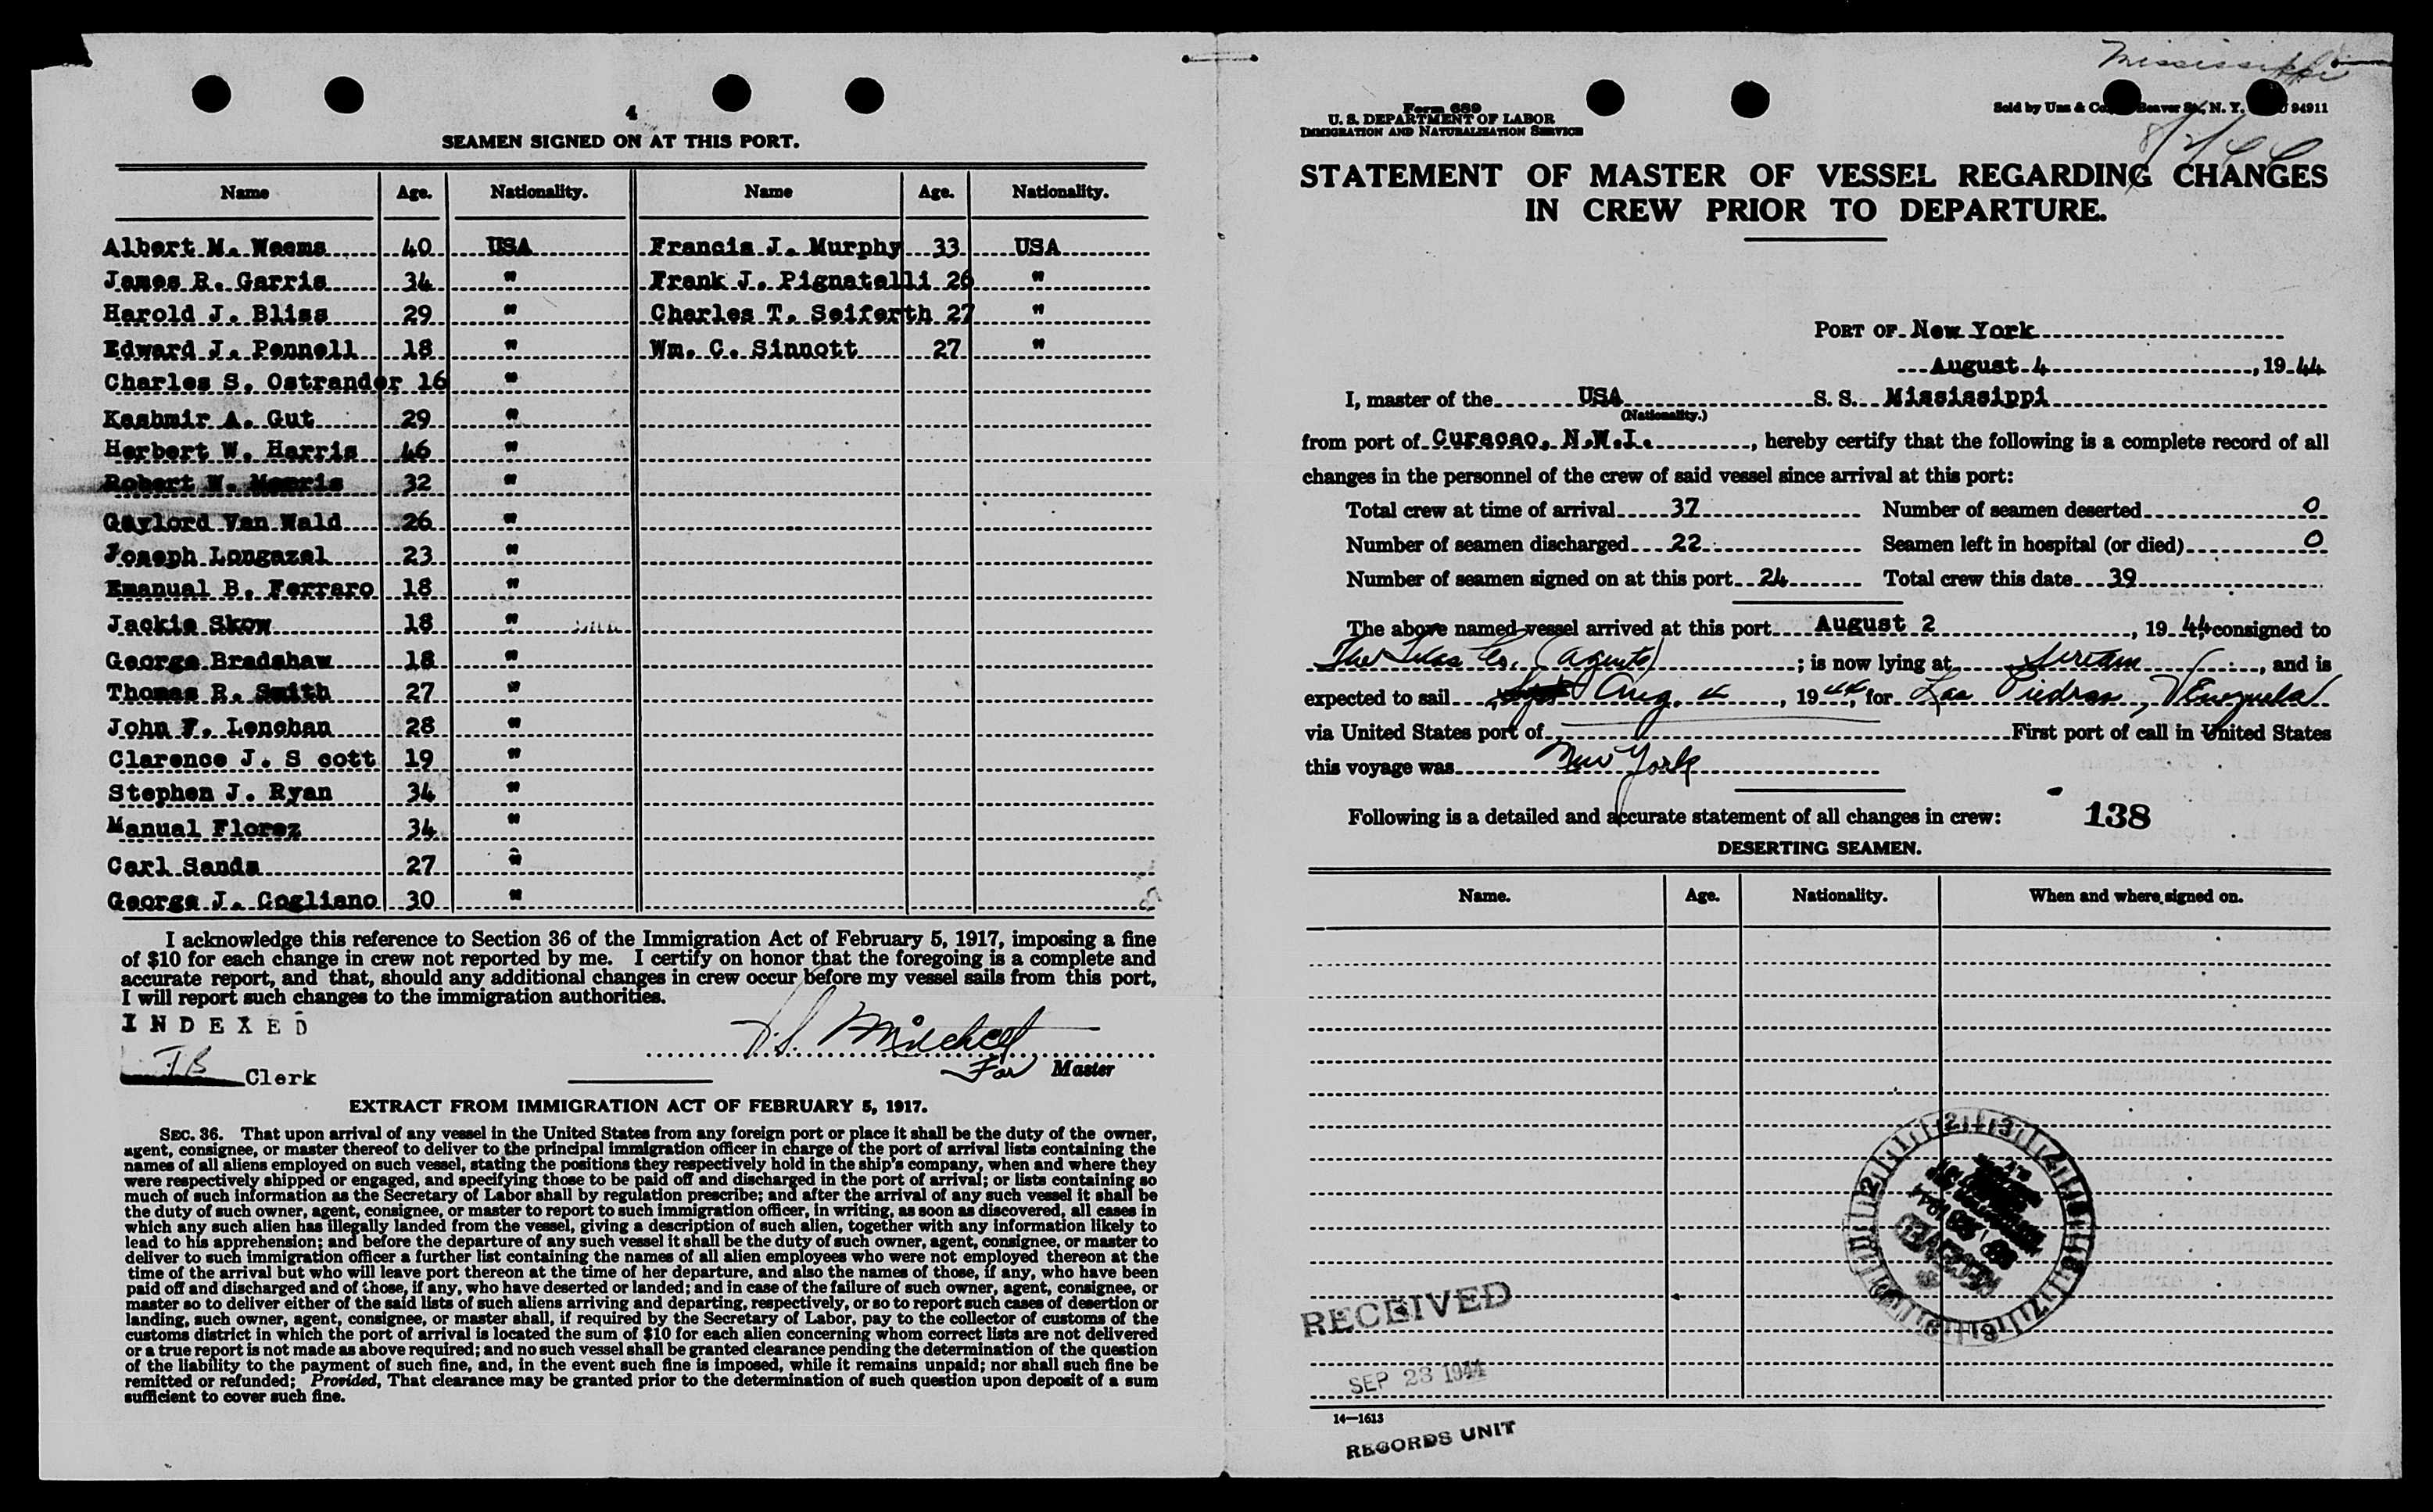 4
SEAMEN SIGNED ON AT THIS PORT.
Name Age. Nationality. Name Age. Nationality.
Albert M. Weems 40 USA Francis J. Murphy 33 USA
James R. Garris 34 " Frank J. Pignatelli 26 "
Harold J. Bliss 29 " Charles T. Seiferth 27 "
Edward J. Pennell 18 " Wm. C. Sinnott 27 "
Charles S. Ostrander, 16 "
Kashmir A. Gut 29 "
Herbert W. Harris 46 "
Robert W. Morris 32 "
Gaylord Van Wald 26 "
Joseph Longazel 23 "
Emanual B. Ferraro 18 "
Jackie Skow 18 "
George Bradshaw 18 "
Thomas R. Smith 27 "
John F. Lenehan 28 "
Clarence J. S cott 19 "
Stephen J. Ryan 34 "
Manual Florez 34 "
Carl Sands 27 "
George J. Cogliano 30 "
I acknowledge this reference to Section 36 of the Immigration Act of February 5, 1917, imposing a fine
of $10 for each change in crew not reported by me. I certify on honor that the foregoing is a complete and
accurate report, and that, should any additional changes in crew occur before my vessel sails from this port,
I will report such changes to the immigration authorities.
INDEXED
JB Clerk
Mitchell
For Master
EXTRACT FROM IMMIGRATION ACT OF FEBRUARY 5, 1917.
SEC. 36. That upon arrival of any vessel in the United States from any foreign port or place it shall be the duty of the owner,
agent, consignee, or master thereof to deliver to the principal immigration officer in charge of the port of arrival lists containing the
names of all aliens employed on such vessel, stating the positions they respectively hold in the ship's company, when and where they
were respectively shipped or engaged, and specifying those to be paid off and discharged in the port of arrival; or lists containing so
much of such information as the Secretary of Labor shall by regulation prescribe; and after the arrival of any such vessel it shall be
the duty of such owner, agent, consignee, or master to report to such immigration officer, in writing, as soon as discovered, all cases in
which any such alien has illegally landed from the vessel, giving a description of such alien, together with any information likely to
lead to his apprehension; and before the departure of any such vessel it shall be the duty of such owner, agent, consignee, or master to
deliver to such immigration officer a further list containing the names of all alien employees who were not employed thereon at the
time of the arrival but who will leave port thereon at the time of her departure, and also the names of those, if any, who have been
paid off and discharged and of those, if any, who have deserted or landed; and in case of the failure of such owner, agent, consignee, or
master so to deliver either of the said lists of such aliens arriving and departing, respectively, or so to report such cases of desertion or
landing, such owner, agent, consignee, or master shall, if required by the Secretary of Labor, pay to the collector of customs of the
customs district in which the port of arrival is located the sum of $10 for each alien concerning whom correct lists are not delivered
or a true report is not made as above required; and no such vessel shall be granted clearance pending the determination of the question
of the liability to the payment of such fine, and, in the event such fine is imposed, while it remains unpaid; nor shall such fine be
remitted or refunded; Provided, That clearance may be granted prior to the determination of such question upon deposit of a sum
sufficient to cover such fine.
Mississippi
Form 689
U. S. DEPARTMENT OF LABOR
IMMIGRATION AND NATURALIZATION SERVICE
Sold by Unz & Co., Beaver St., N. Y. 94911
8/2/44
STATEMENT OF MASTER OF VESSEL REGARDING CHANGES
IN CREW PRIOR TO DEPARTURE.
PORT OF New York
August 4, 1944
I, master of the USA S. S. Mississippi
(Nationality.)
from port of Curacao, N.W.I., hereby certify that the following is a complete record of all
changes in the personnel of the crew of said vessel since arrival at this port:
Total crew at time of arrival 37 Number of seamen deserted 0
Number of seamen discharged 22 Seamen left in hospital (or died) 0
Number of seamen signed on at this port 24 Total crew this date 39
The above named vessel arrived at this port August 2, 1944 consigned to
The Texas Co. (agents); is now lying at Stream, and is
expected to sail Aug. 4, 1944, for Las Piedras, Venezuela
via United States port of First port of call in United States
this voyage was New York
Following is a detailed and accurate statement of all changes in crew: 138
DESERTING SEAMEN.
Name. Age. Nationality. When and where signed on.
RECEIVED
RECEIVED
SEP 23 1944
14—1613
RECORDS UNIT